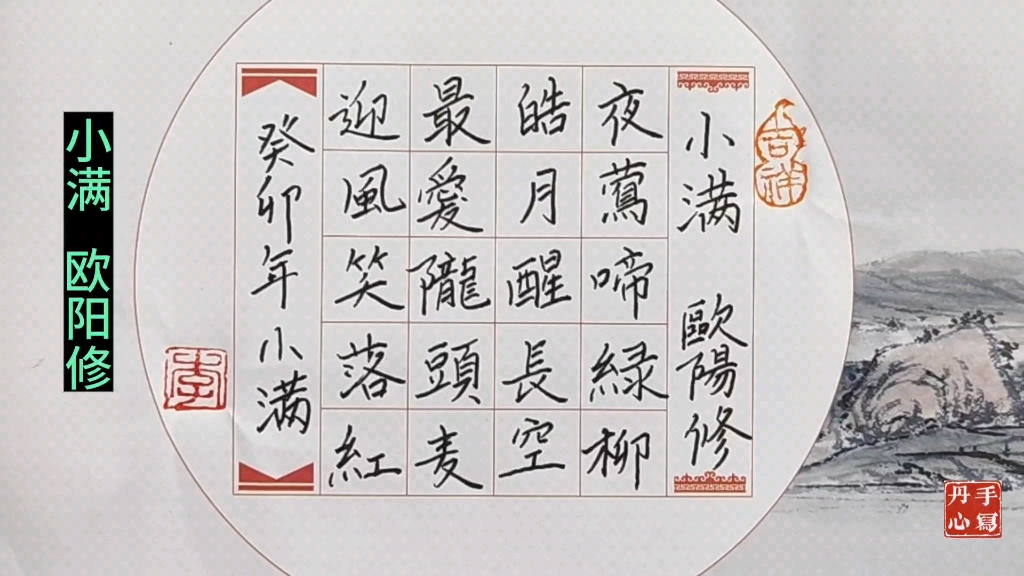 小满 歐陽修
夜鶯啼緑柳
皓月醒長空
最愛隴頭麦
迎風笑落紅
癸卯年小满
小满 欧阳修
吉祥
李
手寫
丹心